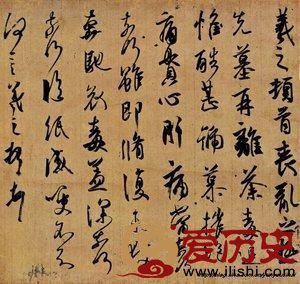 羲之頓首喪亂之極
先墓再離荼毒追
惟酷甚號慕摧絕
痛貫心肝痛當奈何
奈何雖即脩復未獲
奔馳哀毒益深奈何
奈何臨紙感哽不知
何言羲之頓首
爱历史
www.ilishi.com